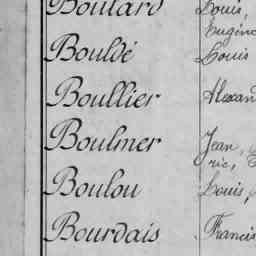 Boutard Louis,
Eugène
Bouldé Louis
Boullier Alexan
Boulmer Jean,
ric,
Boulou Louis,
Bourdais Francis